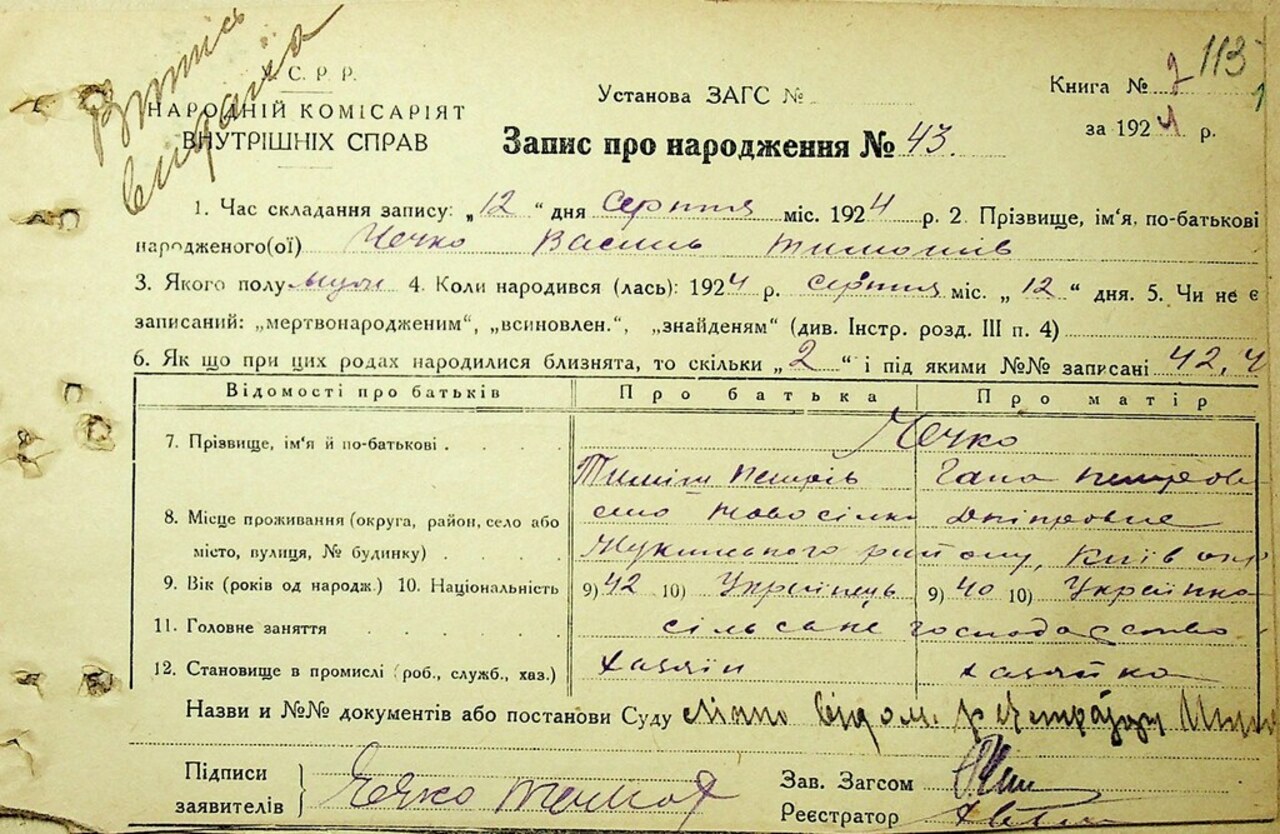 Витпись видана
У.С.Р.Р.
НАРОДНІЙ КОМІСАРІЯТ
ВНУТРІШНІХ СПРАВ
Установа ЗАГС №
Запис про народження № 43.
Книга № 2 113
за 1924 р.
1. Час складання запису: „12“ дня серпня міс. 1924 р. 2. Прізвище, ім‘я, по-батькові
народженого(ої) Чечко Василь Тимошів
3. Якого полу муж 4. Коли народився (лась): 1924 р. серпня міс. „12“ дня. 5. Чи не є
записаний: „мертвонародженим“, „всиновлен.“, „знайденям“ (див. Інстр. розд. III п. 4)
6. Як що при цих родах народилися близнята, то скільки „2“ і під якими №№ записані 42, 4
Відомості про батьків Про батька Про матір
7. Прізвище, ім‘я й по-батькові Чечко
Тиміш Петрів Гана Петрова
8. Місце проживання (округа, район, село або село Новосілки Дніпровые
місто, вулиця, № будинку) Жукинського району, Київ окр
9. Вік (років од народж.) 10. Національність 9) 42 10) Українець 9) 40 10) Українка
11. Головне заняття сільське господарство
12. Становище в промислі (роб., служб., хаз.) хазяїн хазяйка
Назви и №№ документів або постанови Суду
Підписи
заявителів Чечко Тимош
Зав. Загсом
Реєстратор